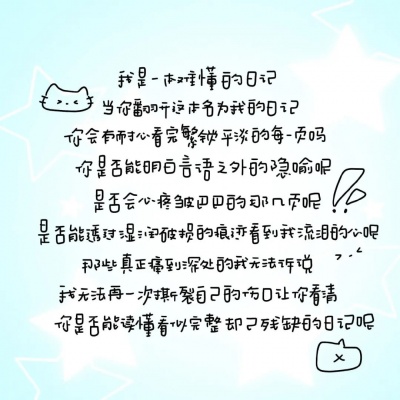 我是一本难懂的日记
当你翻开这本名为我的日记
你会有耐心看完繁锁平淡的每一页吗
你是否能明白言语之外的隐喻呢
是否会心疼皱巴巴的那几页呢
是否能透过湿润破损的痕迹看到我流泪的心呢
那些真正痛到深处的我无法诉说
我无法再一次撕裂自己的伤口让你看清
你是否能读懂看似完整却己残缺的日记呢